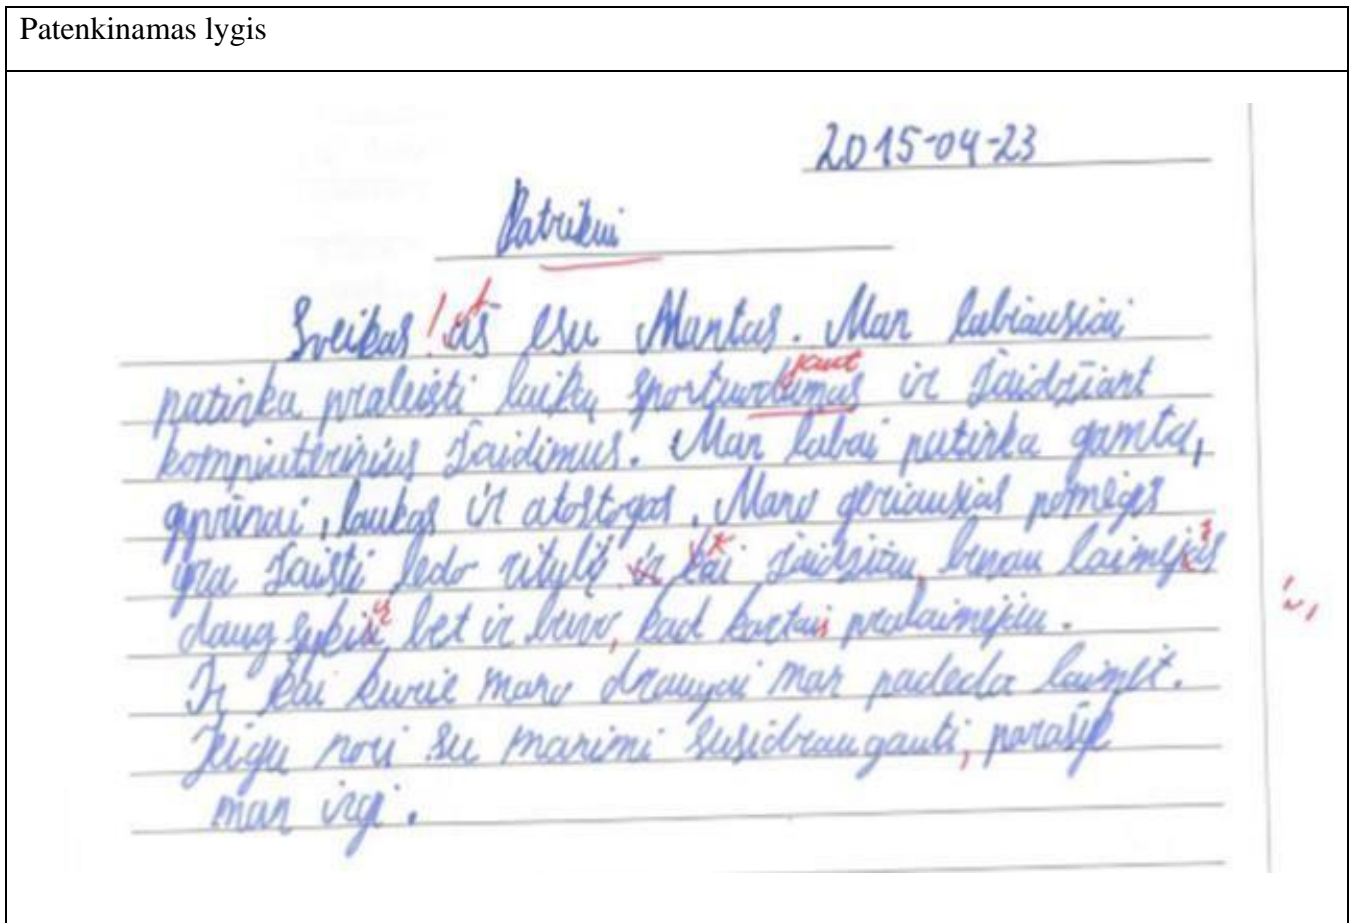 Patenkinamas lygis
2015-04-23
Patrikui
Sveikas! aš esu Mantas. Man labiausiai
jant
patinka praleisti laiką ir žaidžiant
kompiuterinius žaidimus. Man labai patinka gamta,
gyvūnai, laukas ir atostogos. Mano geriausias pomėgis
yra žaisti ledo ritulį ir kai žaidžiau, buvau laimėjęs
daug sykių bet ir buvo, kad kartais pralaimėjau.
Ir kai kurie mano draugai man padeda laimėt.
Jeigu nori su manimi susidraugauti, parašyk
man irgi.